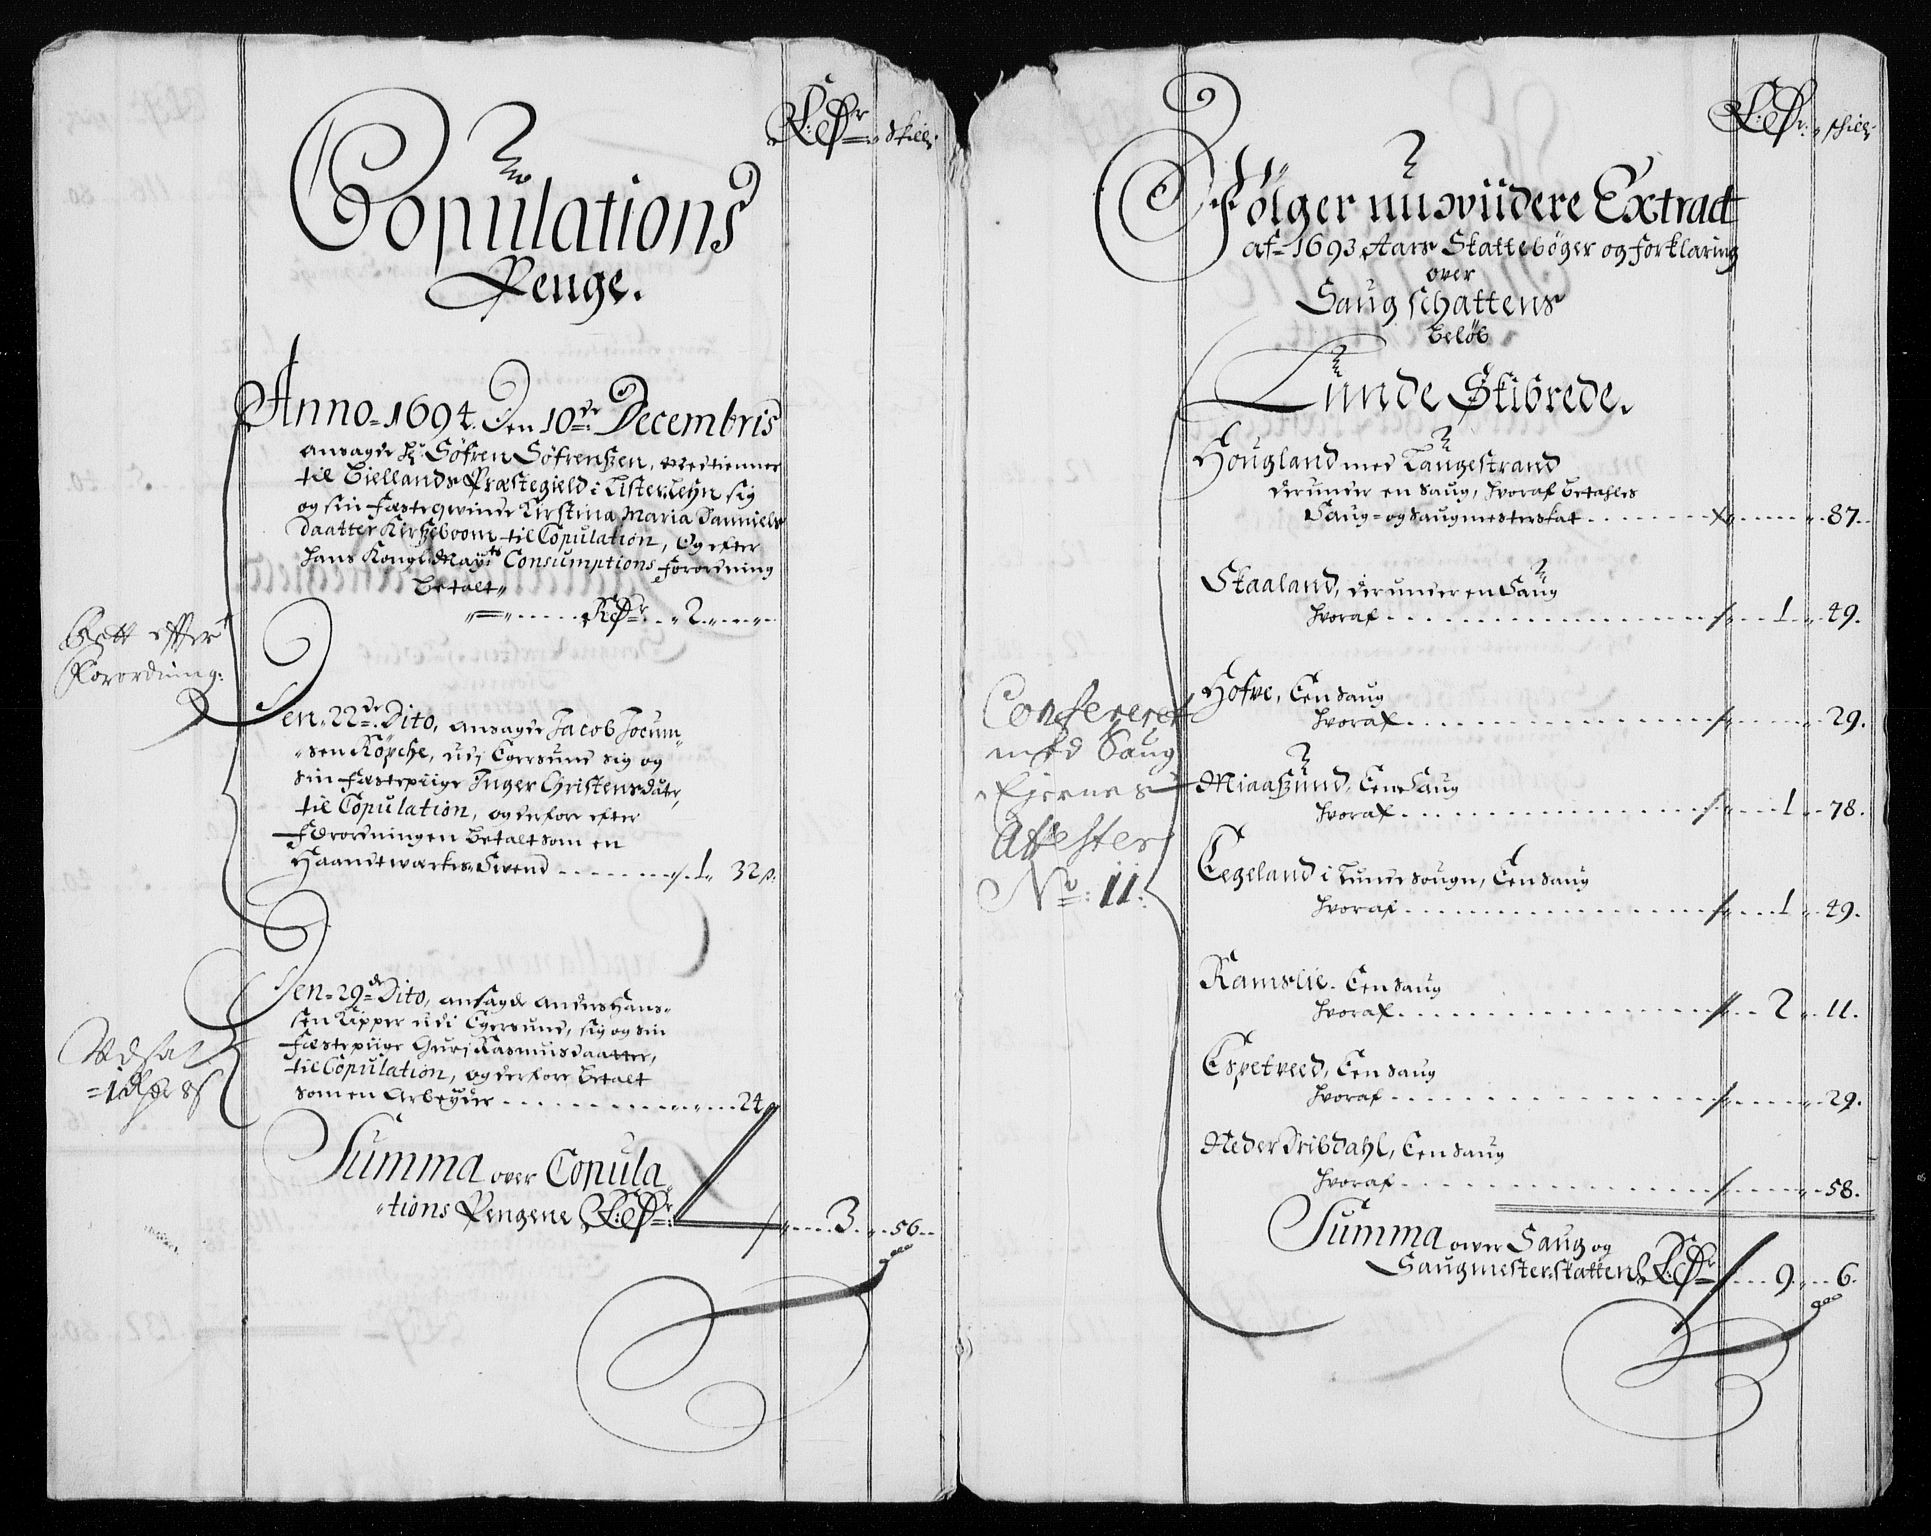 Rdr skill:
Copulations
Penge.
Anno 1694. Den 10de Decembris
ansagde Hr: Söfren Söfrenßen, Medtienner
til Biellands Præstegield i Lister Lehn sig
og sin Fæsteqvinde Kirstina Maria Danniels
daatter Kirßeboom til Copulation, Og efter
Hans Kongl: May:ts Consumptions forordning
betalt
Rdr 2
Rett effter
Forordning:
Den 22de Dito, ansagde Jacob Jocum-
sen Röpche, udj Egersund sig og
sin Fæstepiige Inger Christensdater,
til Copulation, og derfore efter
Forordningen betalt som en
Haandtwærks Svend 1 32 s.
Den 29de Dito, ansagde Anders Hans-
sen Kipper udi Egersund, sig og sin
Fæstepiige Gurj Rasmusdaatter,
til Copulation, og derfore betalt
som en Arbeyder 24
Udsat
Summa over Copula-
tions Pengene Rdr 3 56
Rdr skill
Fölger nu widere Extract
af 1693 Aars Skatteböger og forklaring
over
Saug schattens
belöb
Lunde Skibrede.
Hougland med Laugestrand
derunder en Saug, hvoraf betahles
Saug- og Saugmesterskat 87
Skaaland, derunder en Saug
hvoraf 1 49.
Hofve, Een Saug
hvoraf 29.
Confereret
med Saug
Eyernes
Attester
No: 11:
Miaaßund, Een Saug
hvoraf 1 78.
Eegeland i Lunde Sougn, Een Saug
hvoraf 1 49.
Ramslie. Een Saug
hvoraf 2 11.
Espetveed, Een Saug
hvoraf 29.
Neder Dribdahl, Een Saug
hvoraf 58.
Summa over Saug og
Saugmester skatten Rdr 9 6.